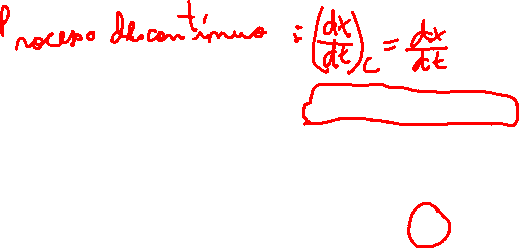 Proceso descontínuo : (dx/dt)_c = dx/dt